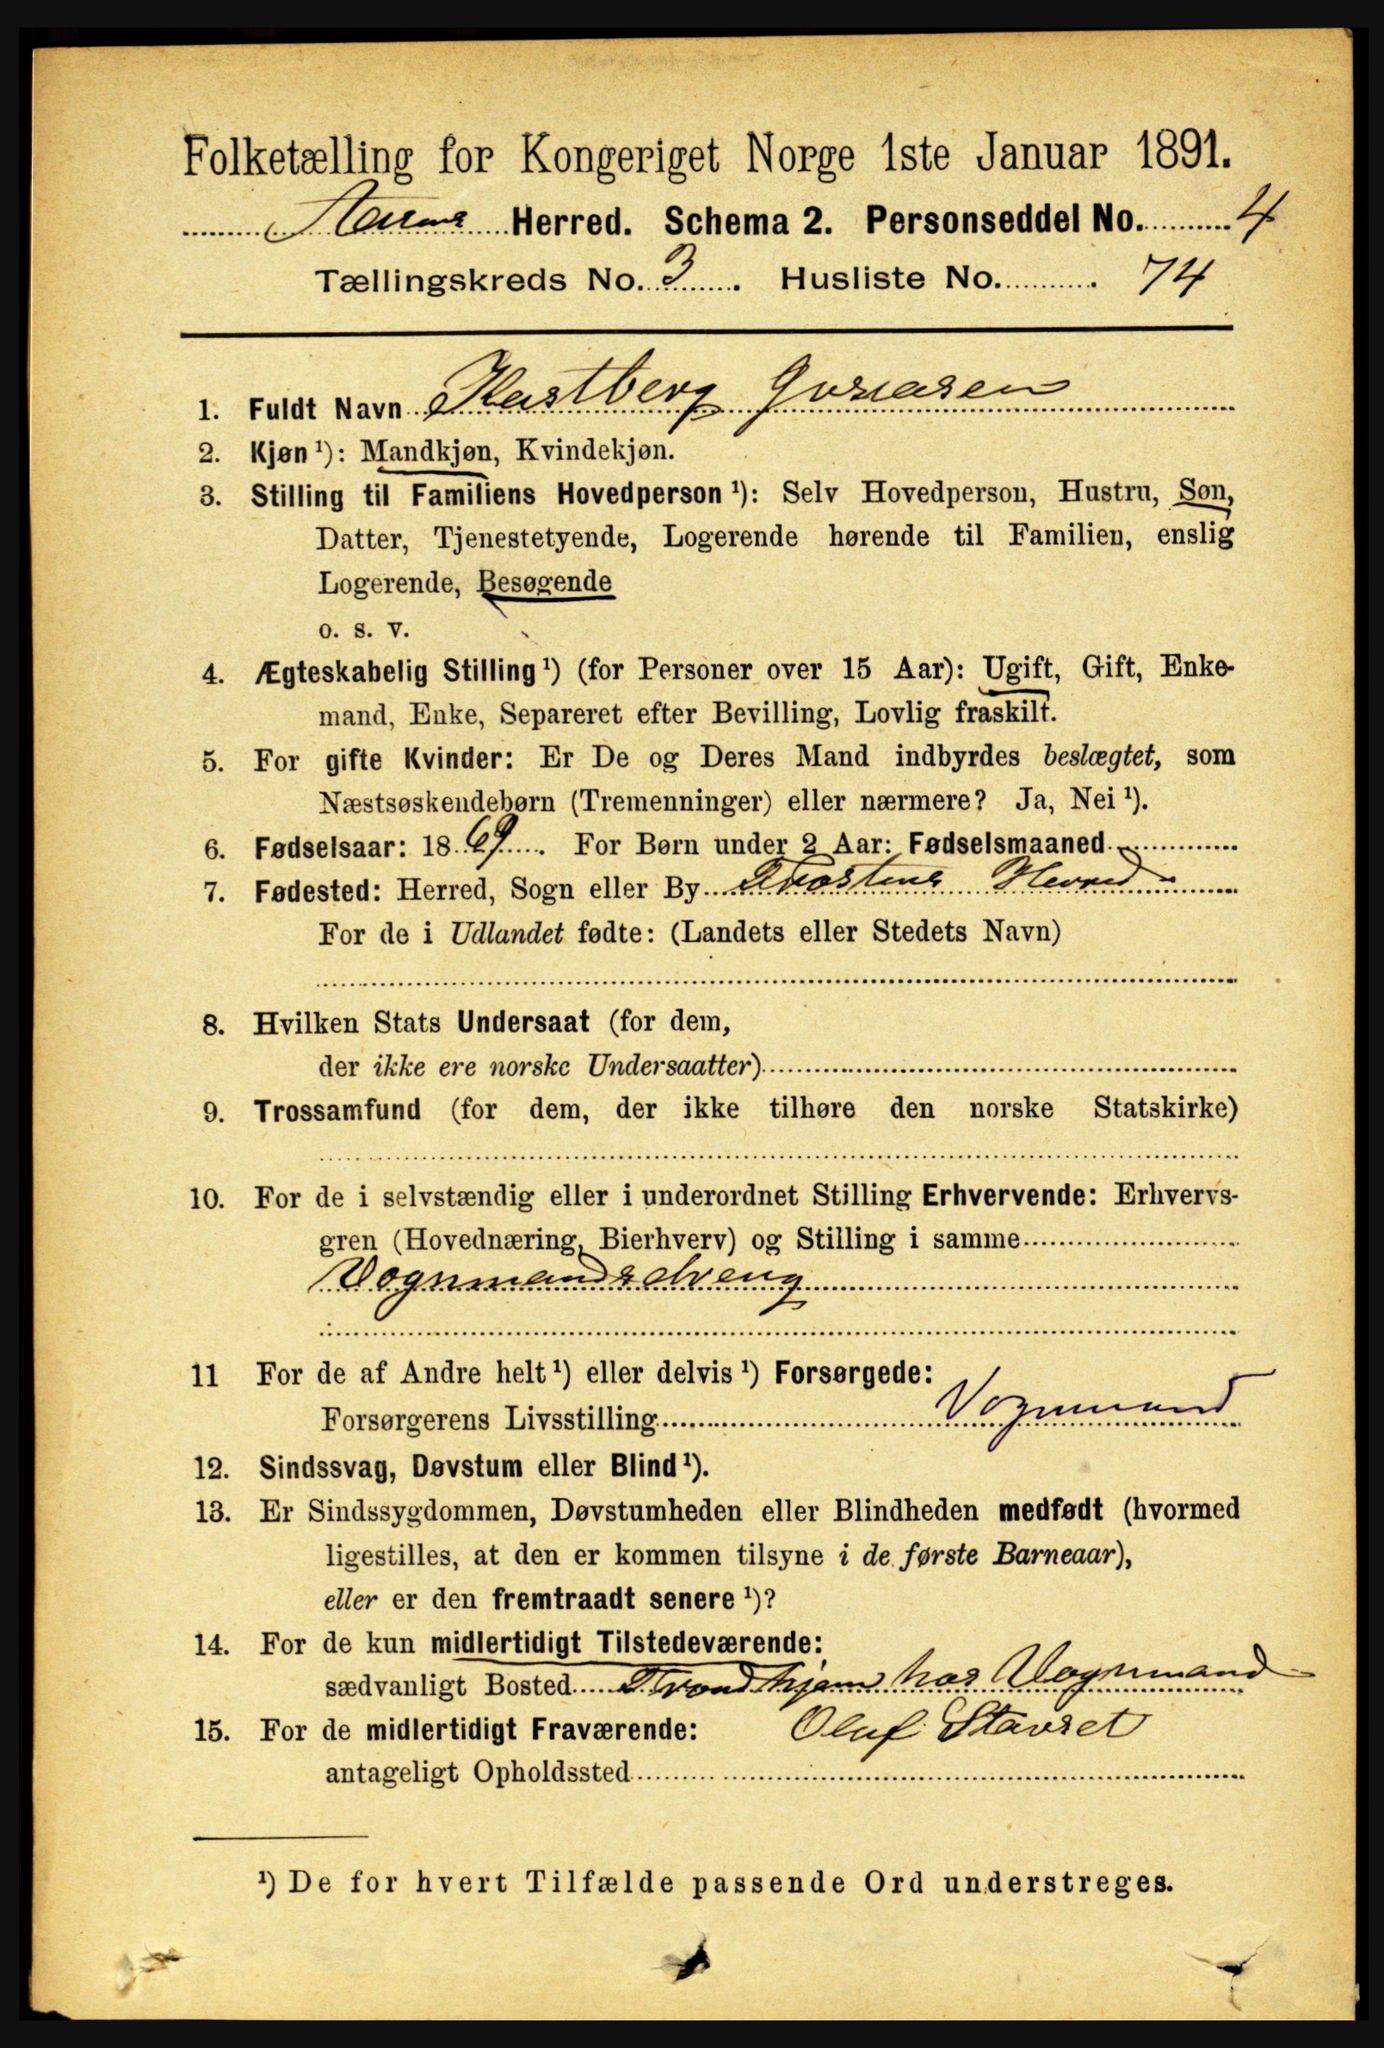 Folketælling for Kongeriget Norge 1ste Januar 1891.
Herred. Schema 2. Personseddel No. 4
Tællingskreds No. 3. Husliste No. 74
1. Fuldt Navn
2. Kjøn ¹): Mandkjøn, Kvindekjøn.
3. Stilling til Familiens Hovedperson ¹): Selv Hovedperson, Hustru, Søn,
Datter, Tjenestetyende, Logerende hørende til Familien, enslig
Logerende, Besøgende
o. s. v.
4. Ægteskabelig Stilling ¹) (for Personer over 15 Aar): Ugift, Gift, Enke-
mand, Enke, Separeret efter Bevilling, Lovlig fraskilt.
5. For gifte Kvinder: Er De og Deres Mand indbyrdes beslægtet, som
Næstsøskendebørn (Tremenninger) eller nærmere? Ja, Nei ¹).
6. Fødselsaar: 1869. For Børn under 2 Aar: Fødselsmaaned
7. Fødested: Herred, Sogn eller By Herred
For de i Udlandet fødte: (Landets eller Stedets Navn)
8. Hvilken Stats Undersaat (for dem,
der ikke ere norske Undersaatter)
9. Trossamfund (for dem, der ikke tilhøre den norske Statskirke)
10. For de i selvstændig eller i underordnet Stilling Erhvervende: Erhvervs-
gren (Hovednæring, Bierhverv) og Stilling i samme
Vognmandsdreng
11 For de af Andre helt ¹) eller delvis ¹) Forsørgede:
Forsørgerens Livsstilling Vognmand
12. Sindssvag, Døvstum eller Blind ¹).
13. Er Sindssygdommen, Døvstumheden eller Blindheden medfødt (hvormed
ligestilles, at den er kommen tilsyne i de første Barneaar),
eller er den fremtraadt senere ¹)?
14. For de kun midlertidigt Tilstedeværende:
sædvanligt Bosted Trondhjem hos Vognmand
15. For de midlertidigt Fraværende: Oluf Stavset
antageligt Opholdssted
¹) De for hvert Tilfælde passende Ord understreges.